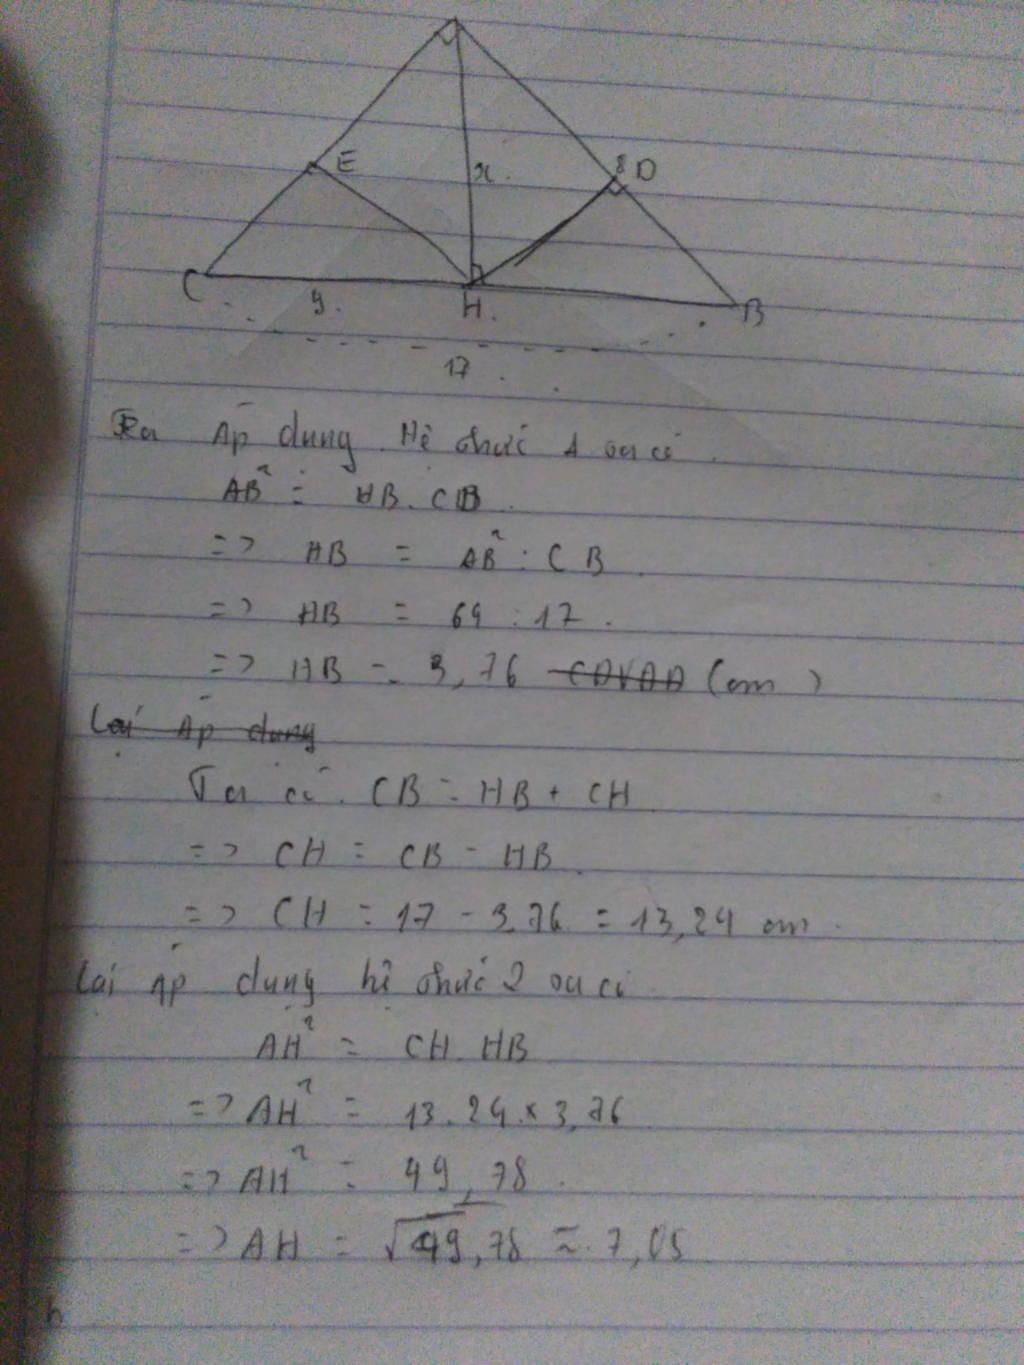 E
x
8
D
C
y.
H.
B
17
Ta Áp dụng Hệ thức 1 ta có
AB² = HB. CB
=> HB = AB² : CB
=> HB = 64 : 17.
=> HB = 3,76 (cm)
Lại Áp dụng
Ta có. CB = HB + CH
=> CH = CB - HB
=> CH = 17 - 3,76 = 13,24 cm.
Lại Áp dụng hệ thức 2 ta có
AH² = CH. HB
=> AH² = 13.24 x 3,76
=> AH² = 49,78
=> AH = √49,78 ≈ 7,05